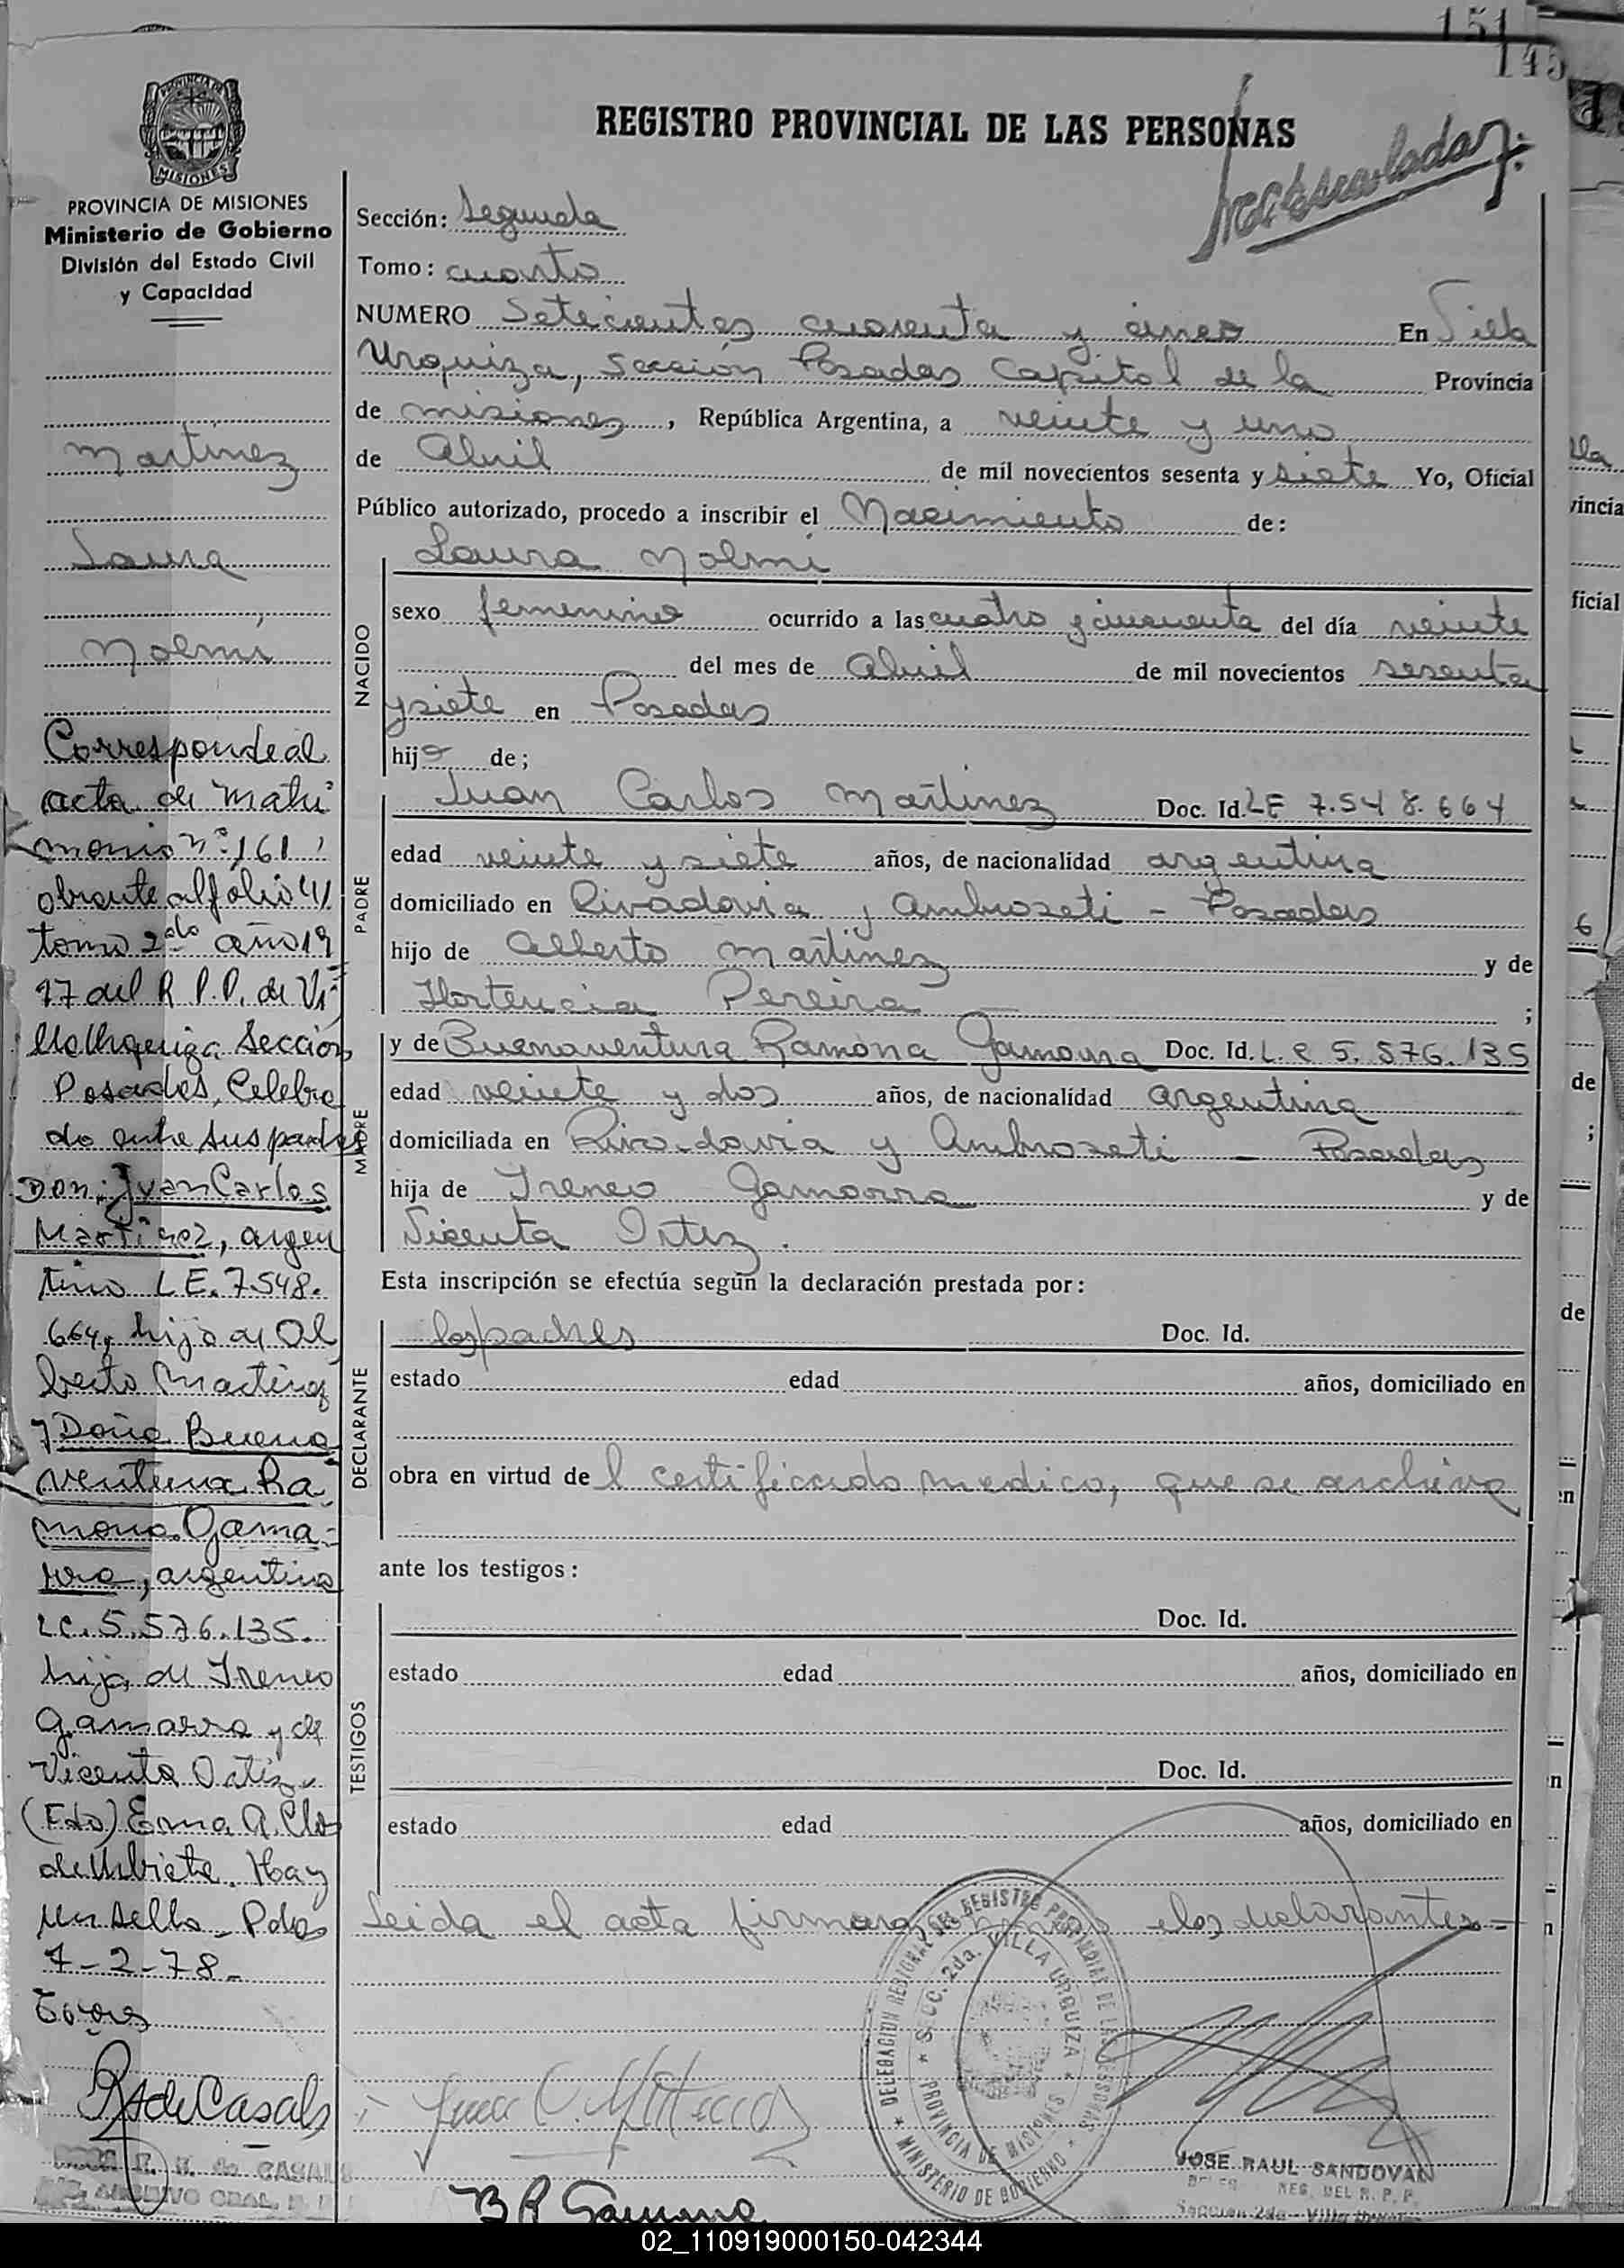 151
145
REGISTRO PROVINCIAL DE LAS PERSONAS
PROVINCIA DE MISIONES
Ministerio de Gobierno
División del Estado Civil
y Capacidad
Martinez
Laura
Noemí
Corresponde al
acta de Matri
monio nº 161
obrante al folio 41
tomo 2do año 19
77 del R P.P. de Vi
lla Urquiza Sección
Posadas, Celebra
do entre sus padres
Don: Juan Carlos
Martinez, argen
tino L.E. 7548.
664, hijo de Al
berto Martinez
y Doña Buena
ventura Ra
mona Gama-
rra, argentina
LC. 5.576.135.
hija de Ireneo
Gamarra y de
Vicenta Ortiz
(Fdo) Erna A. 
de Urbieta. Hay
un sello. Pdas
7-2-78-
R S de Casals
Sección: Segunda
Tomo: cuarto
NUMERO Setecientos cuarenta y cinco En Villa
Urquiza, Sección Posadas Capital de la Provincia
de misiones, República Argentina, a veinte y uno
de Abril de mil novecientos sesenta y siete Yo, Oficial
Público autorizado, procedo a inscribir el Nacimiento de:
NACIDO
Laura Noemi
sexo femenino ocurrido a las cuatro y cincuenta del día veinte
del mes de Abril de mil novecientos sesenta
y siete en Posadas
hija de;
PADRE
Juan Carlos Martinez Doc. Id. LE 7.548.664
edad veinte y siete años, de nacionalidad argentina
domiciliado en Rivadavia y Ambroseti - Posadas
hijo de Alberto Martinez y de
Hortencia Pereira ;
MADRE
y de Buenaventura Ramona Gamarra Doc. Id. L.C 5.576.135
edad veinte y dos años, de nacionalidad argentina
domiciliada en Rivadavia y Ambroseti - Posadas
hija de Ireneo Gamarra y de
Vicenta Ortiz.
Esta inscripción se efectúa según la declaración prestada por:
DECLARANTE
los padres Doc. Id.
estado edad años, domiciliado en
obra en virtud del certificado medico, que se archiva
ante los testigos:
TESTIGOS
Doc. Id.
estado edad años, domiciliado en
Doc. Id.
estado edad años, domiciliado en
Leida el acta firman los declarantes-
DELEGACION REGIONAL DEL REGISTRO PROVINCIAL DE LAS PERSONAS
SECC. 2da. VILLA URQUIZA
PROVINCIA DE MISIONES
MINISTERIO DE GOBIERNO
Juan C. Martinez
B R Gamarra
JOSE RAUL SANDOVAL
REG. DEL R. P. P.
Sección 2da - Villa Urquiza
02_110919000150-042344